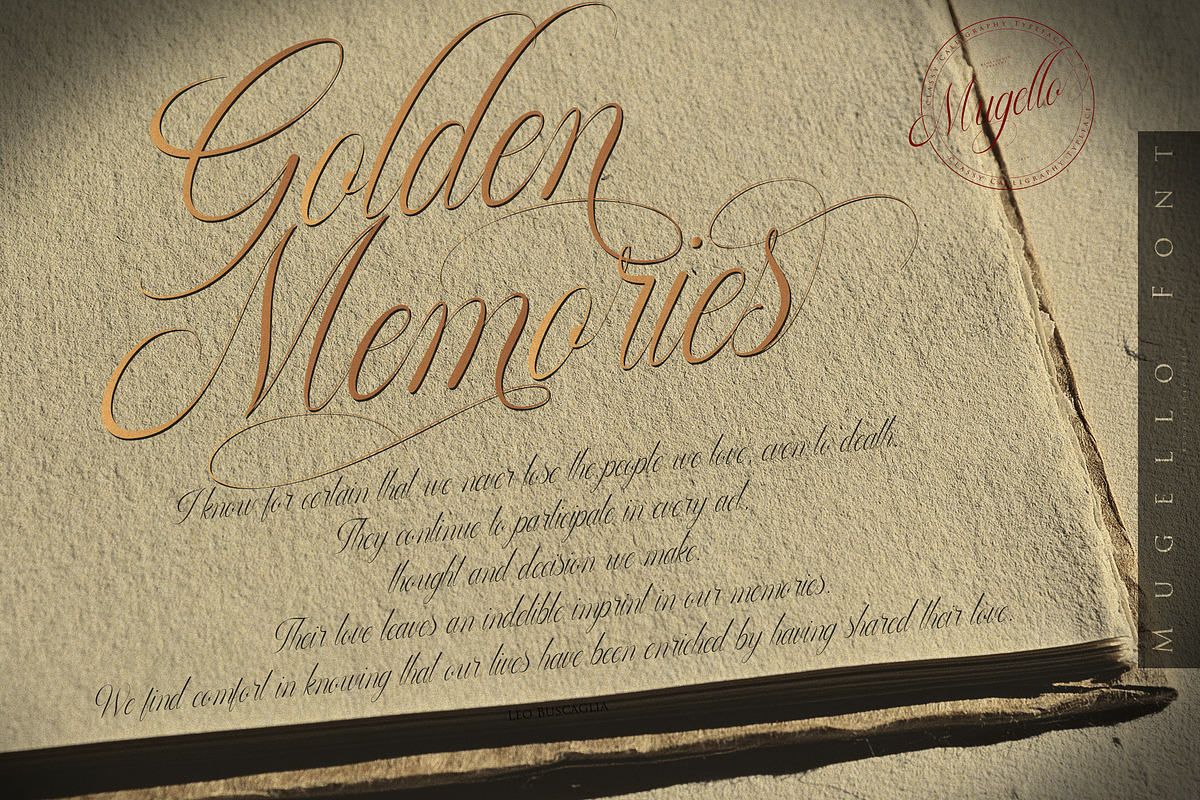 Golden
Memories
I know for certain that we never lose the people we love, even to death.
They continue to participate in every act,
thought and decision we make.
Their love leaves an indelible imprint in our memories.
We find comfort in knowing that our lives have been enriched by having shared their love.
Leo Buscaglia
Classy Calligraphy Typeface
Mugello
Classy Calligraphy Typeface
MUGELLO FONT